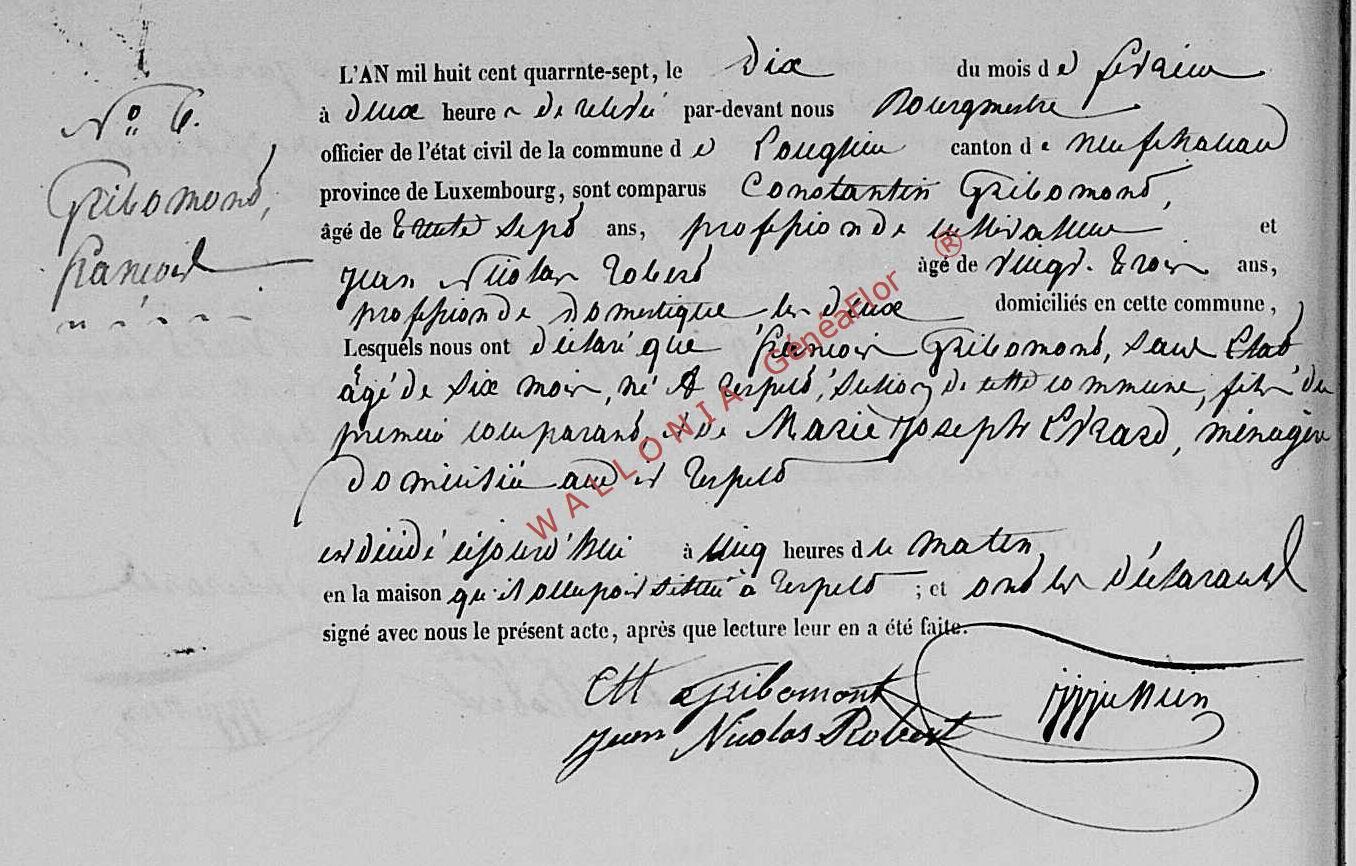 N° 6.
Gribomont,
François
L'AN mil huit cent quarrnte-sept, le dix du mois de février
à deux heures de relevé par-devant nous Bourgmestre
officier de l'état civil de la commune de Longlier canton de neufchateau
province de Luxembourg, sont comparus Constantin Gribomont,
âgé de trente sept ans, profession de cultivateur et
Jean Nicolas Robert âgé de vingt-trois ans,
profession de domestique les deux domiciliés en cette commune,
Lesquels nous ont déclaré que François Gribomont, sans Etat
âgé de six mois, né à Respelt, section de cette commune, fils du
premier comparant, et de Marie Joseph Evrard, ménagère
domiciliée au dit Respelt
est décédé cejourd'hui à cinq heures du matin,
en la maison qu'il occupoit située à Respelt ; et ont les déclarants
signé avec nous le présent acte, après que lecture leur en a été faite.
Gribomont
Jean Nicolas Robert
WALLONIA GénéaFlor ®